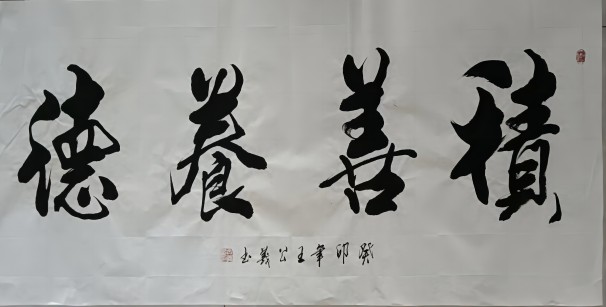 積善養德
癸卯年王公義书